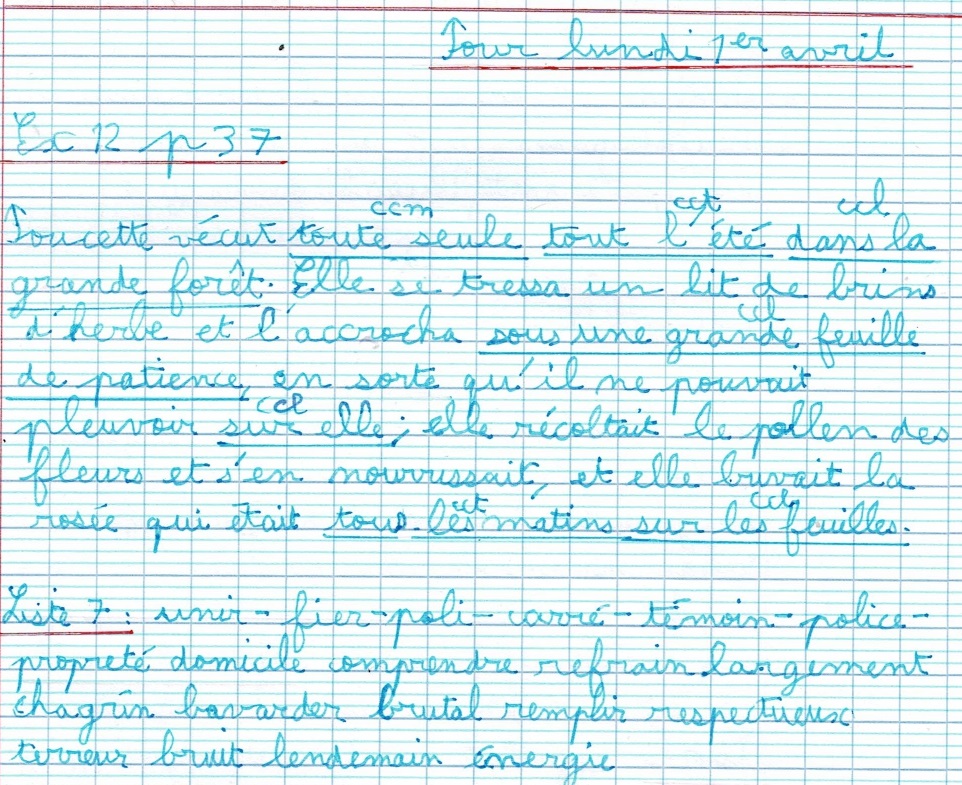 Pour lundi 1er avril
Ex 12 p 37
ccm cct ccl
Poucette vécut toute seule tout l'été dans la
grande forêt. Elle se tressa un lit de brins
ccl
d'herbe et l'accrocha sous une grande feuille
de patience, en sorte qu'il ne pouvait
ccl
pleuvoir sur elle; elle récoltait le pollen des
fleurs et s'en nourrussait, et elle buvait la
cct ccl
rosée qui était tous les matins sur les feuilles.
Liste 7 : unir - fier - poli - carré - témoin - police -
propreté domicile comprendre refrain largement
chagrin bavarder brutal remplir respectueux
terreur bruit lendemain énergie